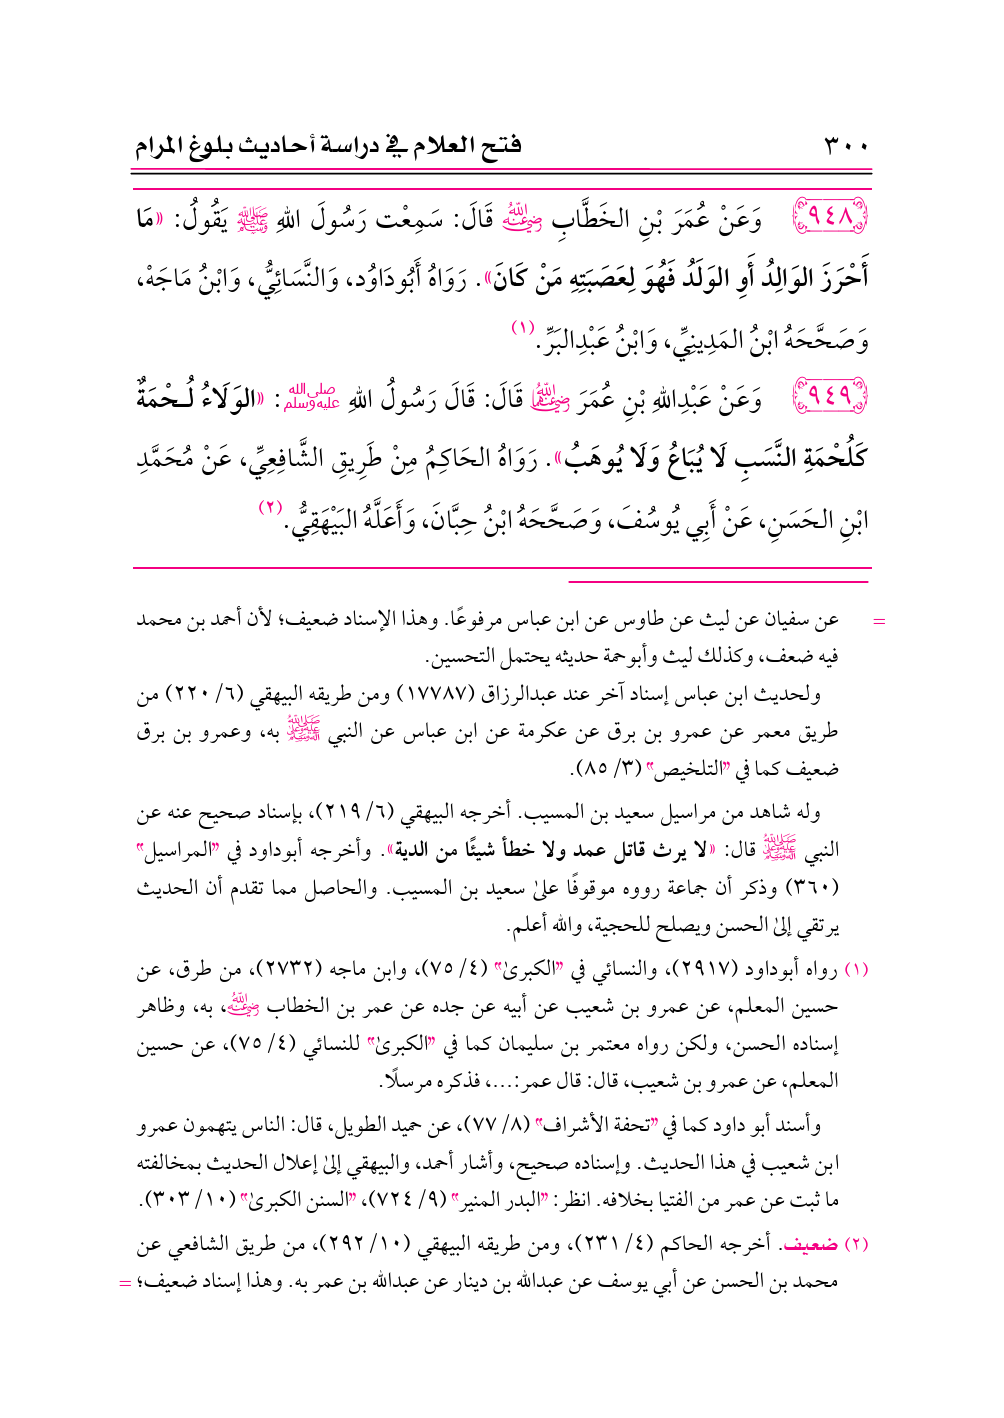 ٣٠٠ فتح العلام في دراسة أحاديث بلوغ المرام
٩٤٨ وَعَنْ عُمَرَ بْنِ الخَطَّابِ رضي الله عنه قَالَ: سَمِعْت رَسُولَ اللهِ ﷺ يَقُولُ: «مَا
أَحْرَزَ الوَالِدُ أَوِ الوَلَدُ فَهُوَ لِعَصَبَتِهِ مَنْ كَانَ». رَوَاهُ أَبُودَاوُد، وَالنَّسَائِيُّ، وَابْنُ مَاجَهْ،
وَصَحَّحَهُ ابْنُ المَدِينِيِّ، وَابْنُ عَبْدِالبَرِّ.(١)
٩٤٩ وَعَنْ عَبْدِاللهِ بْنِ عُمَرَ رضي الله عنهما قَالَ: قَالَ رَسُولُ اللهِ صلى الله عليه وسلم: «الوَلَاءُ لُـحْمَةٌ
كَلُحْمَةِ النَّسَبِ لَا يُبَاعُ وَلَا يُوهَبُ». رَوَاهُ الحَاكِمُ مِنْ طَرِيقِ الشَّافِعِيِّ، عَنْ مُحَمَّدِ
ابْنِ الحَسَنِ، عَنْ أَبِي يُوسُفَ، وَصَحَّحَهُ ابْنُ حِبَّانَ، وَأَعَلَّهُ البَيْهَقِيُّ.(٢)
= عن سفيان عن ليث عن طاوس عن ابن عباس مرفوعًا. وهذا الإسناد ضعيف؛ لأن أحمد بن محمد
فيه ضعف، وكذلك ليث وأبوحمة حديثه يحتمل التحسين.
ولحديث ابن عباس إسناد آخر عند عبدالرزاق (١٧٧٨٧) ومن طريقه البيهقي (٦/ ٢٢٠) من
طريق معمر عن عمرو بن برق عن عكرمة عن ابن عباس عن النبي ﷺ به، وعمرو بن برق
ضعيف كما في "التلخيص" (٣/ ٨٥).
وله شاهد من مراسيل سعيد بن المسيب. أخرجه البيهقي (٦/ ٢١٩)، بإسناد صحيح عنه عن
النبي ﷺ قال: «لا يرث قاتل عمد ولا خطأ شيئًا من الدية». وأخرجه أبوداود في "المراسيل"
(٣٦٠) وذكر أن جماعة رووه موقوفًا علىٰ سعيد بن المسيب. والحاصل مما تقدم أن الحديث
يرتقي إلىٰ الحسن ويصلح للحجية، والله أعلم.
(١) رواه أبوداود (٢٩١٧)، والنسائي في "الكبرىٰ" (٤/ ٧٥)، وابن ماجه (٢٧٣٢)، من طرق، عن
حسين المعلم، عن عمرو بن شعيب عن أبيه عن جده عن عمر بن الخطاب رضي الله عنه، به، وظاهر
إسناده الحسن، ولكن رواه معتمر بن سليمان كما في "الكبرىٰ" للنسائي (٤/ ٧٥)، عن حسين
المعلم، عن عمرو بن شعيب، قال: قال عمر:...، فذكره مرسلًا.
وأسند أبو داود كما في "تحفة الأشراف" (٨/ ٧٧)، عن حميد الطويل، قال: الناس يتهمون عمرو
ابن شعيب في هذا الحديث. وإسناده صحيح، وأشار أحمد، والبيهقي إلىٰ إعلال الحديث بمخالفته
ما ثبت عن عمر من الفتيا بخلافه. انظر: "البدر المنير" (٩/ ٧٢٤)، "السنن الكبرىٰ" (١٠/ ٣٠٣).
(٢) ضعيف. أخرجه الحاكم (٤/ ٢٣١)، ومن طريقه البيهقي (١٠/ ٢٩٢)، من طريق الشافعي عن
محمد بن الحسن عن أبي يوسف عن عبدالله بن دينار عن عبدالله بن عمر به. وهذا إسناد ضعيف؛ =